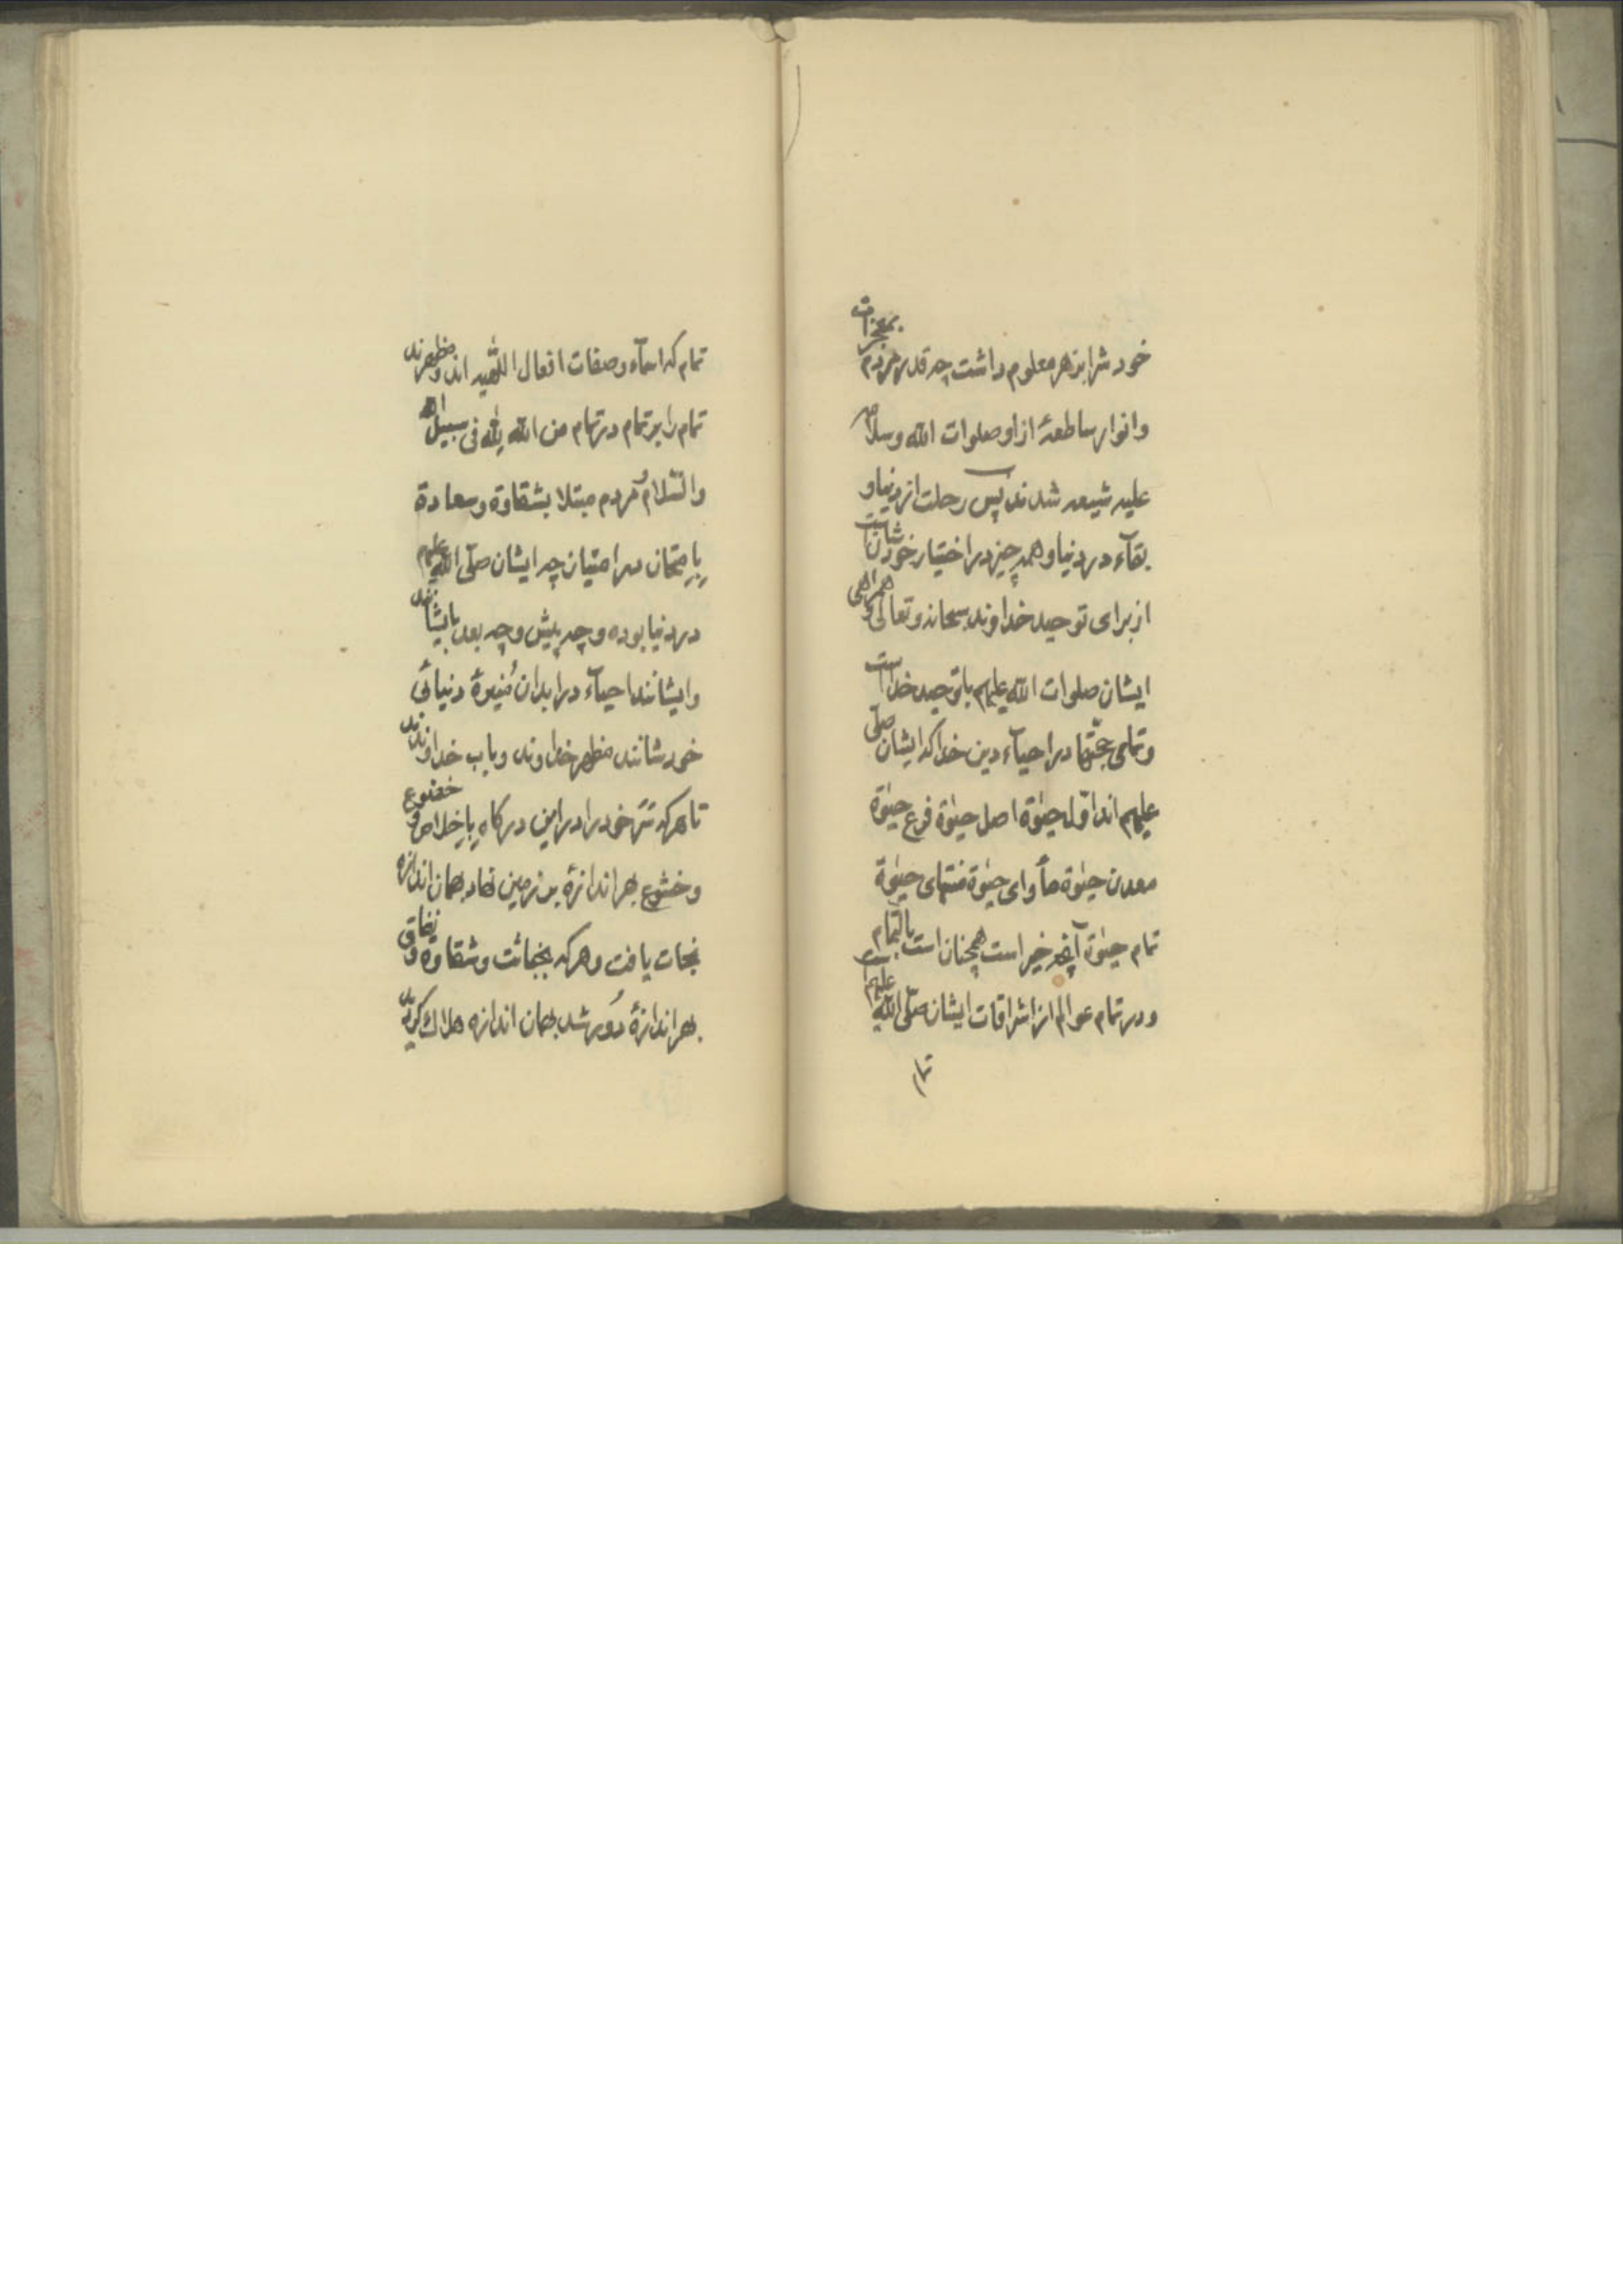 خودشرا بزهر معلوم داشت چه قدر مردم بمعجزات
وانوار ساطعهٔ از او صلوات الله وسلامه
علیه شیعه شدند پس رحلت از دنیا و
بقآء در دنیا و همه چیز در اختیار خودشان است
از برای توحید خداوند سبحانه وتعالی و همراهی
ایشان صلوات الله علیهم با توحید خداست
وتمامی حجّتها در احیآء دین خدا که ایشان صلّی
علیهم اند اوّل حیٰوة اصل حیٰوة فرع حیٰوة
معدن حیٰوة مأوای حیٰوة منتهای حیٰوة
تمام حیٰوة آنچه خیر است همچنان است بالتّمام
ودر تمام عوالم از اشراقات ایشان صلّی الله علیهم است
تمام
تمام که اسمآء وصفات افعال اللّهیه اند ومظهرند
تمام را بر تمام در تمام من الله لله فی سبیل الله
والسّلام ومردم مبتلا بشقاوة وسعادة
بامتحان در امتیان چه ایشان صلّی الله علیهم
در دنیا بوده وچه پیش وچه بعد باشند
وایشانند احیآء در ابدان مُنیرهٔ دنیائی
خودشانند مظهر خداوند وباب خداوندند
تا هرکه سر خود را در این درگاه باخلاص و خضوع
وخشوع بهر اندازهٔ بر زمین نهاد بهمان اندازه
نجات یافت وهرکه بخباثت وشقاوة و نفاق
بهر اندازهٔ دُور شد بهمان اندازه هلاك گردید